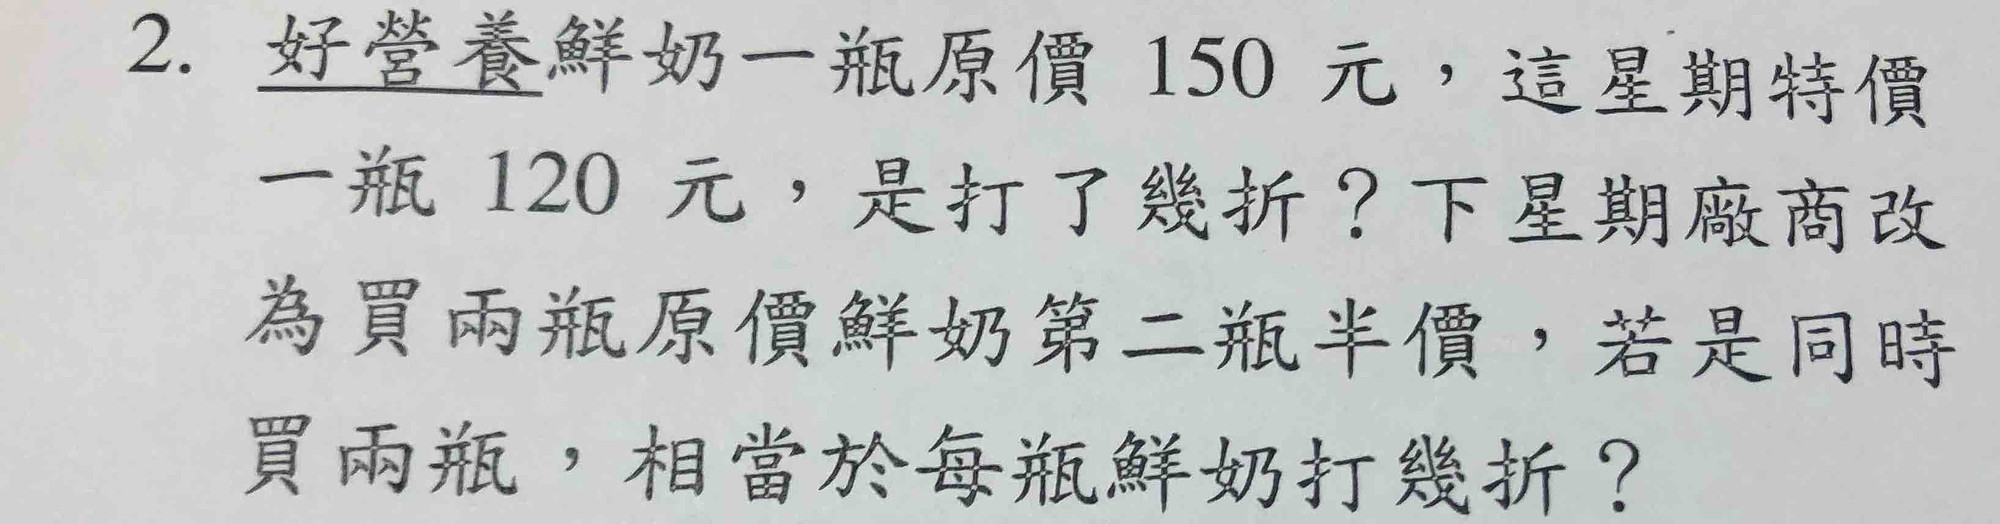 2. 好營養鮮奶一瓶原價 150 元，這星期特價
一瓶 120 元，是打了幾折？下星期廠商改
為買兩瓶原價鮮奶第二瓶半價，若是同時
買兩瓶，相當於每瓶鮮奶打幾折？